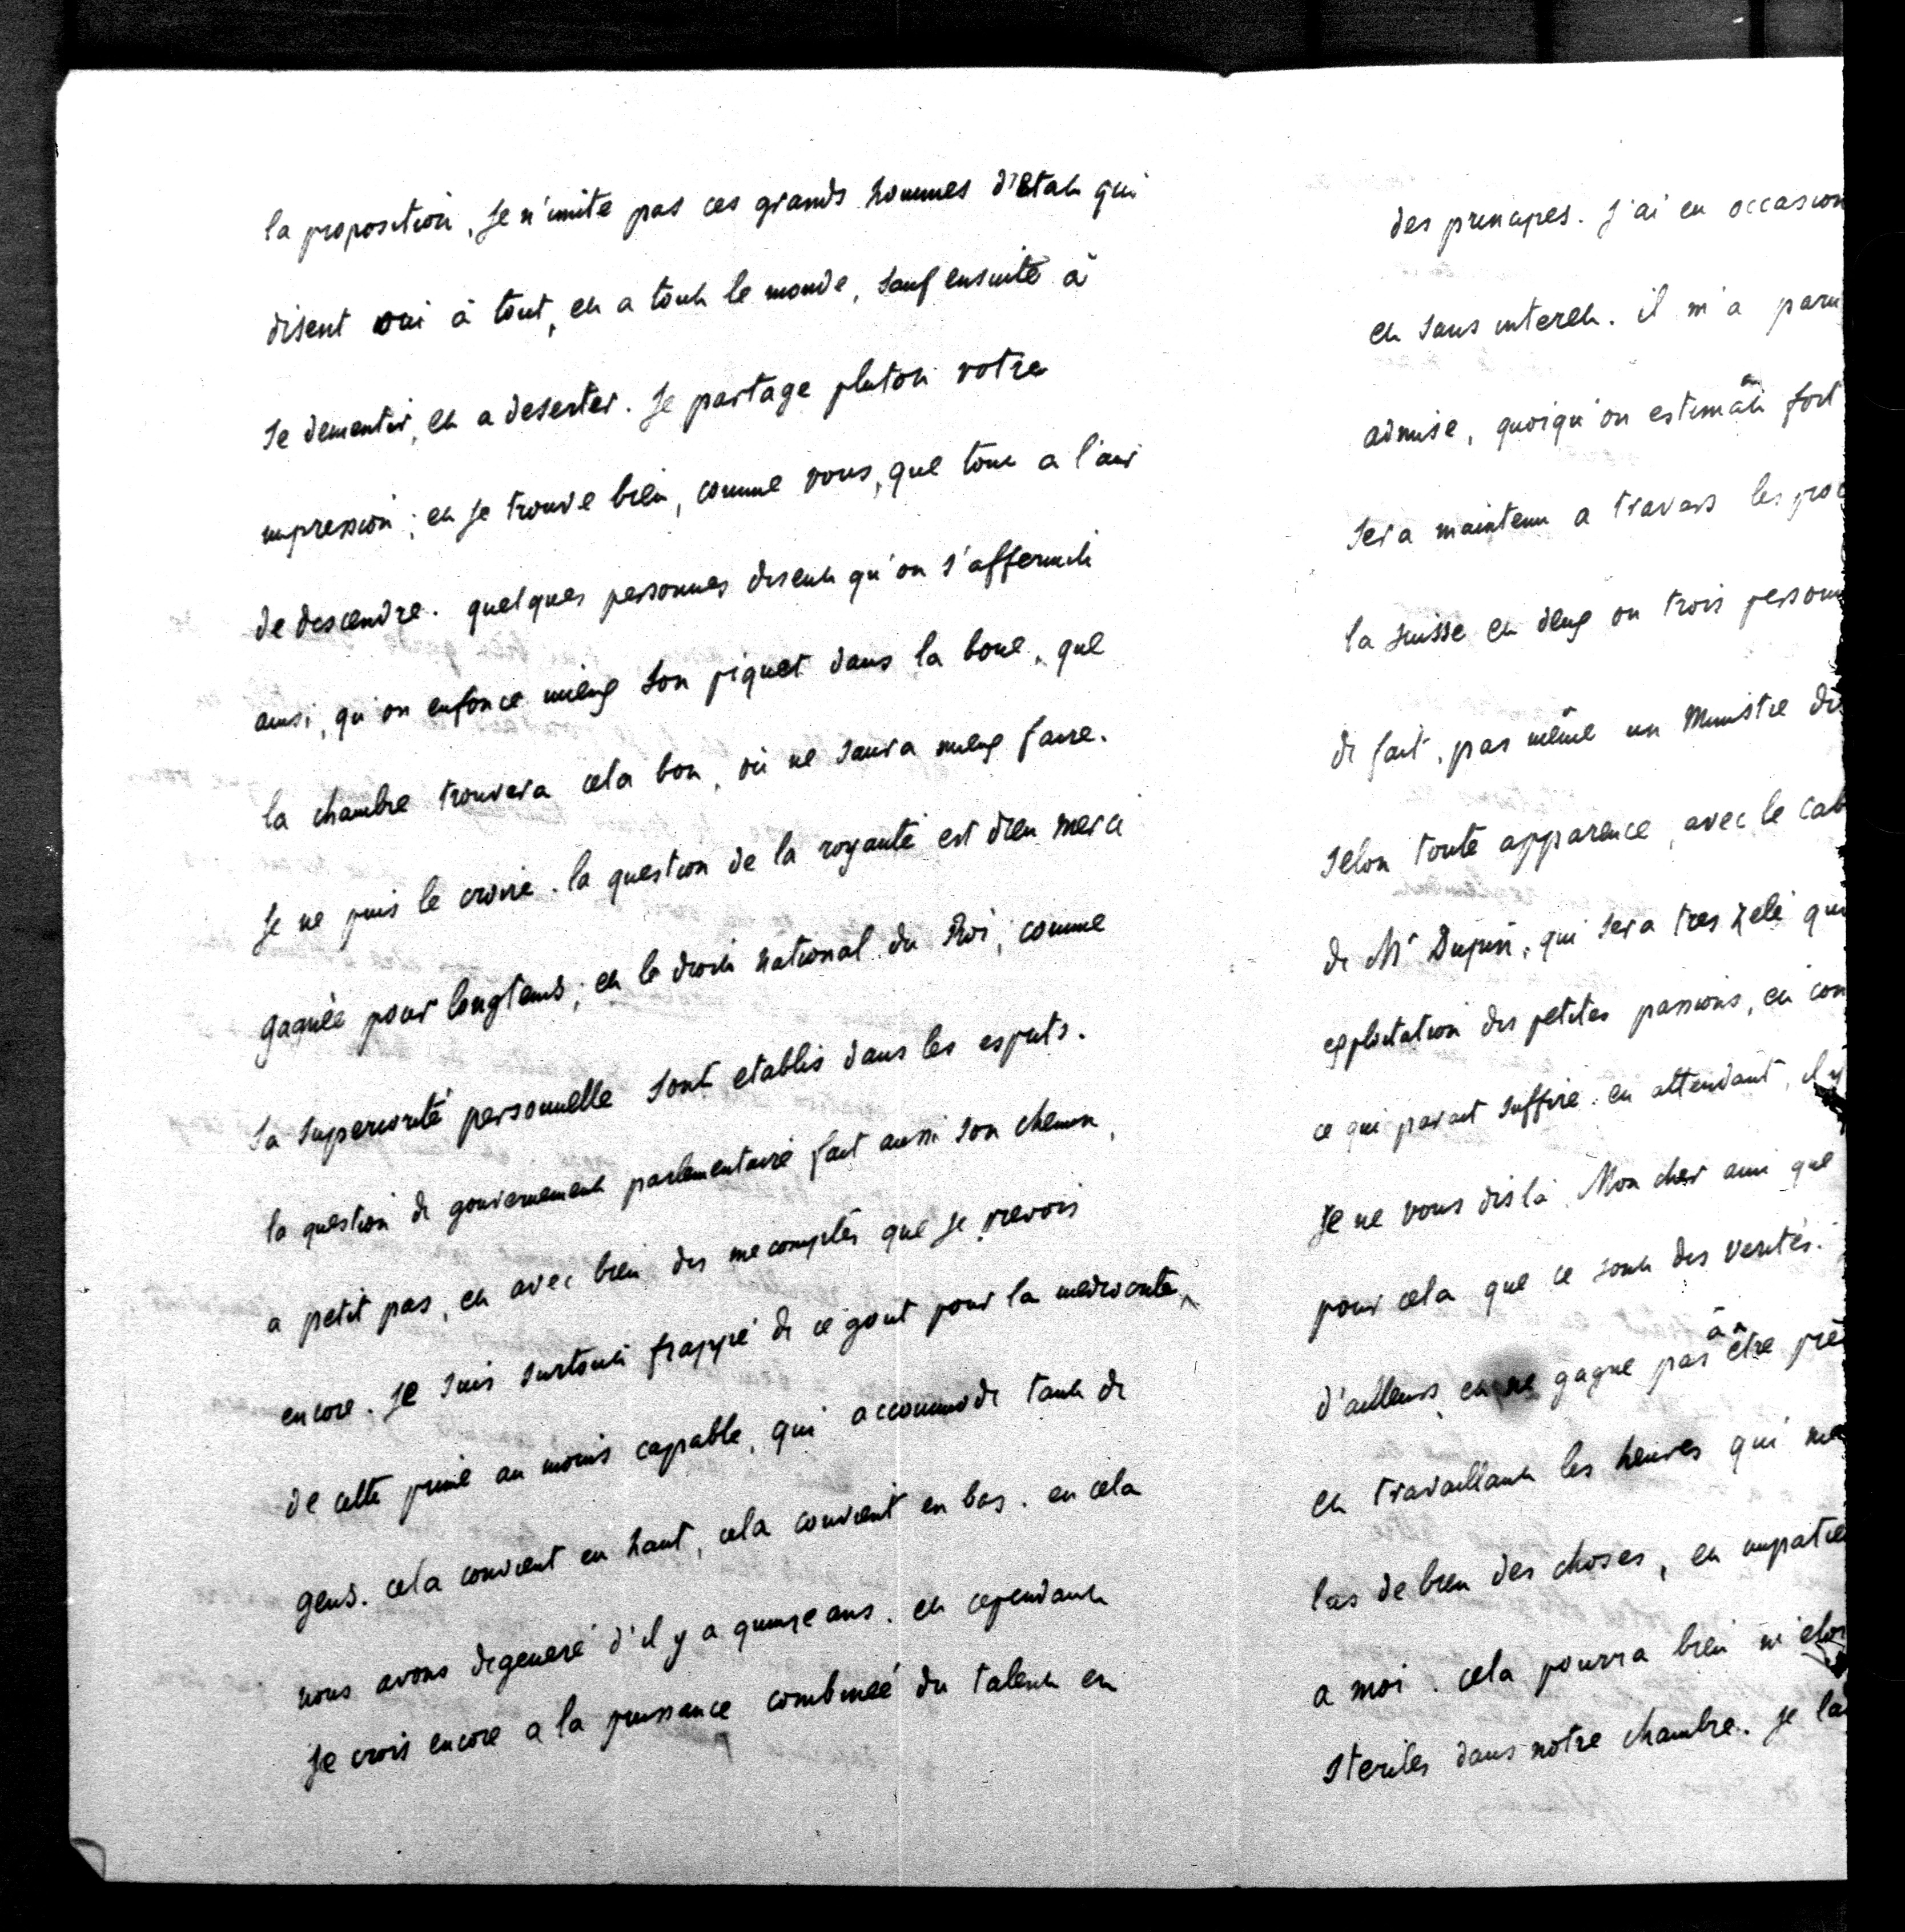 la proposition, je n'imite pas ces grands hommes d'Etat qui
disent oui à tout, et a tout le monde, sauf ensuite à
se dementir, et a deserter. je partage plutot votre
impression; et je trouve bien, comme vous, que tout a l'air
de descendre. quelques personnes disent qu'on s'affermit
ainsi, qu'on enfonce mieux son piquet dans la boue, que
la chambre trouvera cela bon, ou ne saura mieux faire.
je ne puis le croire. la question de la royauté est dieu merci
gagnée pour longtems; et le droit national du Roi, comme
sa superiorité personnelle sont etablis dans les esprits.
la question de gouvernement parlementaire fait aussi son chemin,
a petit pas, et avec bien des mecomptes que je prevois
encore. je suis surtout frappé de ce gout pour la mediocrité,
de cette prime au moins capable, qui accommode tant de
gens. cela convient en haut, cela convient en bas. en cela
nous avons degeneré d'il y a quinze ans. et cependant
je crois encore a la puissance combinée du talent et
des principes. j'ai eu occasion
et sans interet. il m'a paru
admise, quoiqu'on estimât fort
sera maintenu a travers les
la suisse et deux ou trois
de fait, pas même un Ministre
selon toute apparence, avec le
de Mr Dupin, qui sera tres zelé
exploitation des petites passions, et
ce qui parait suffire. en attendant, il y
je ne vous dis là Mon cher ami que
pour cela que ce sont des verités.
d'ailleurs, et ne gagne pas à être
en travaillant les heures qui me
las de bien des choses, et
a moi. cela pourra bien
steriles dans notre chambre. je